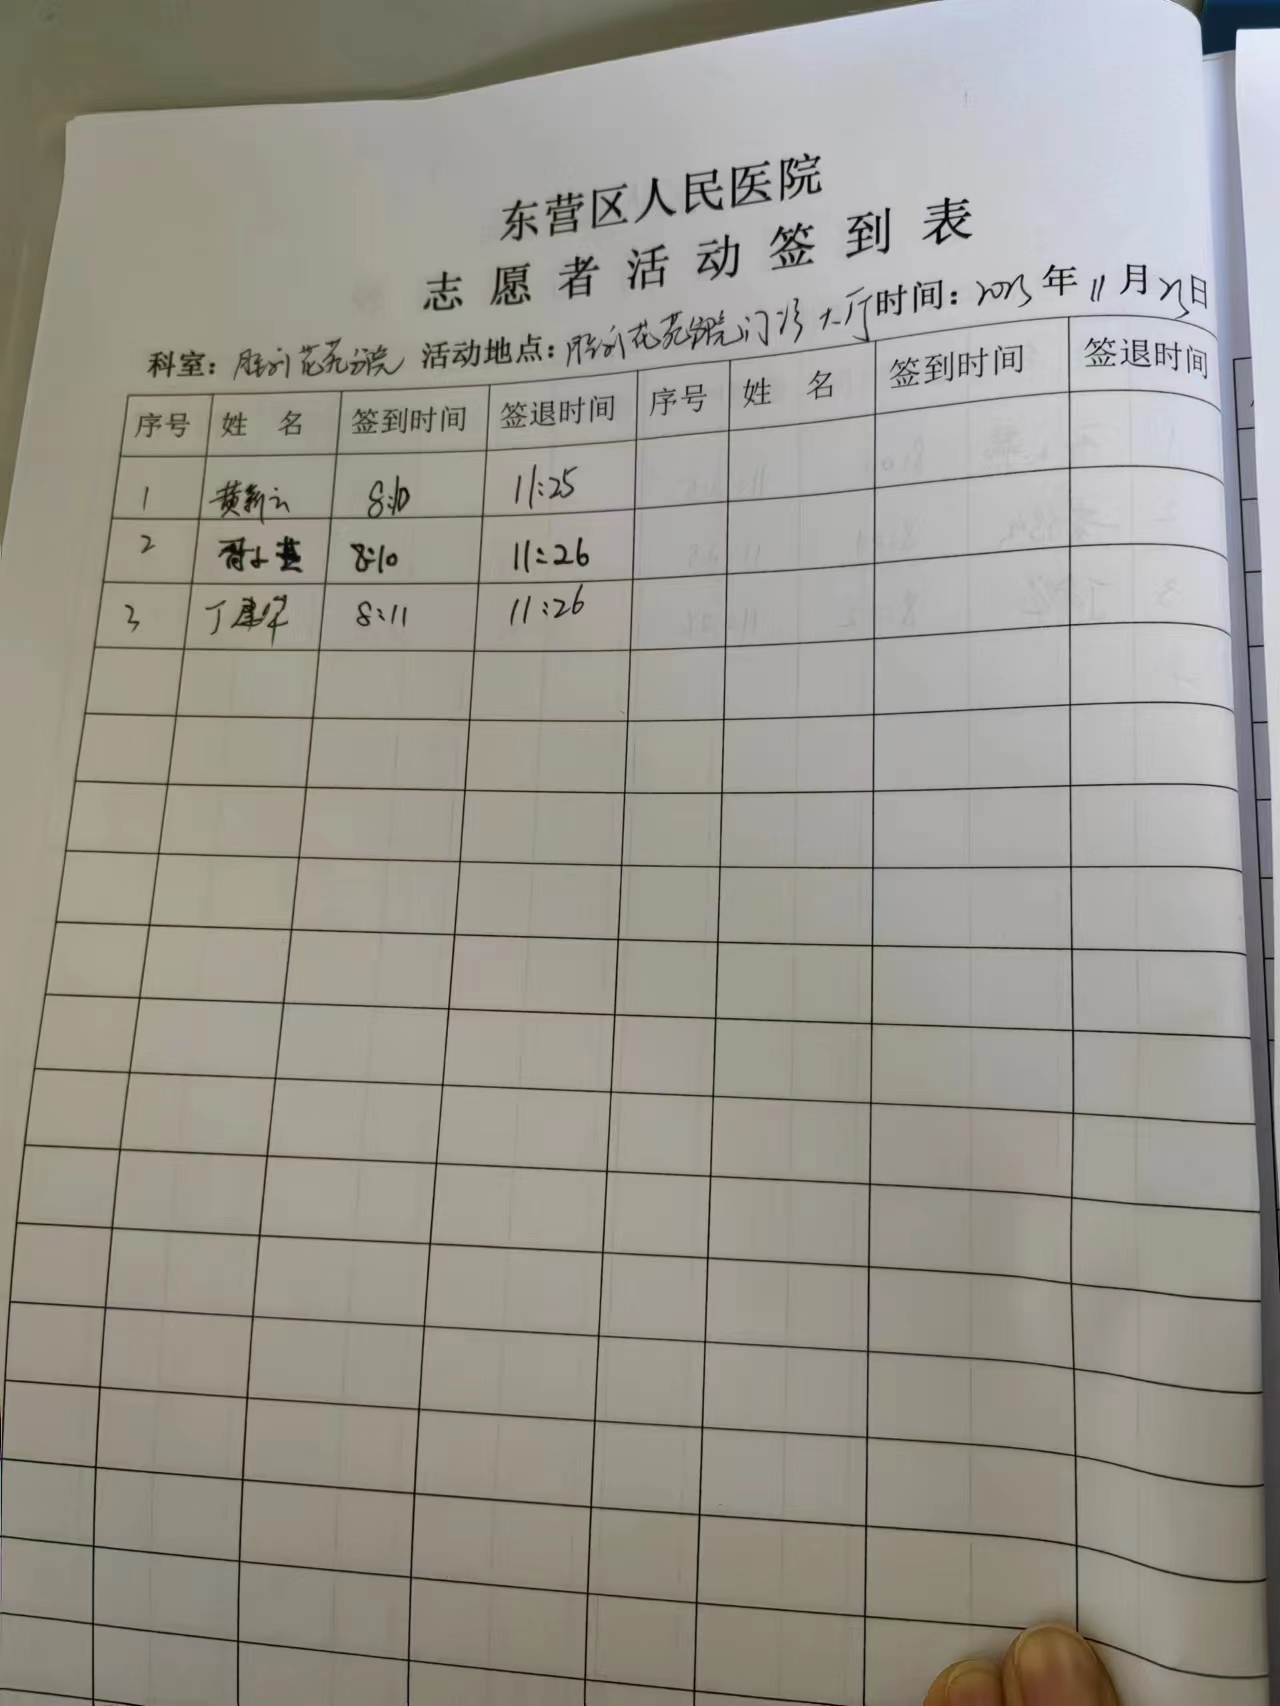 东营区人民医院
志愿者活动签到表
科室：胜利花苑分院 活动地点：胜利花苑分院门诊大厅 时间：2023年11月23日
序号 姓名 签到时间 签退时间 序号 姓名 签到时间 签退时间
1 黄新云 8:10 11:25
2 8:10 11:26
3 丁建华 8:11 11:26